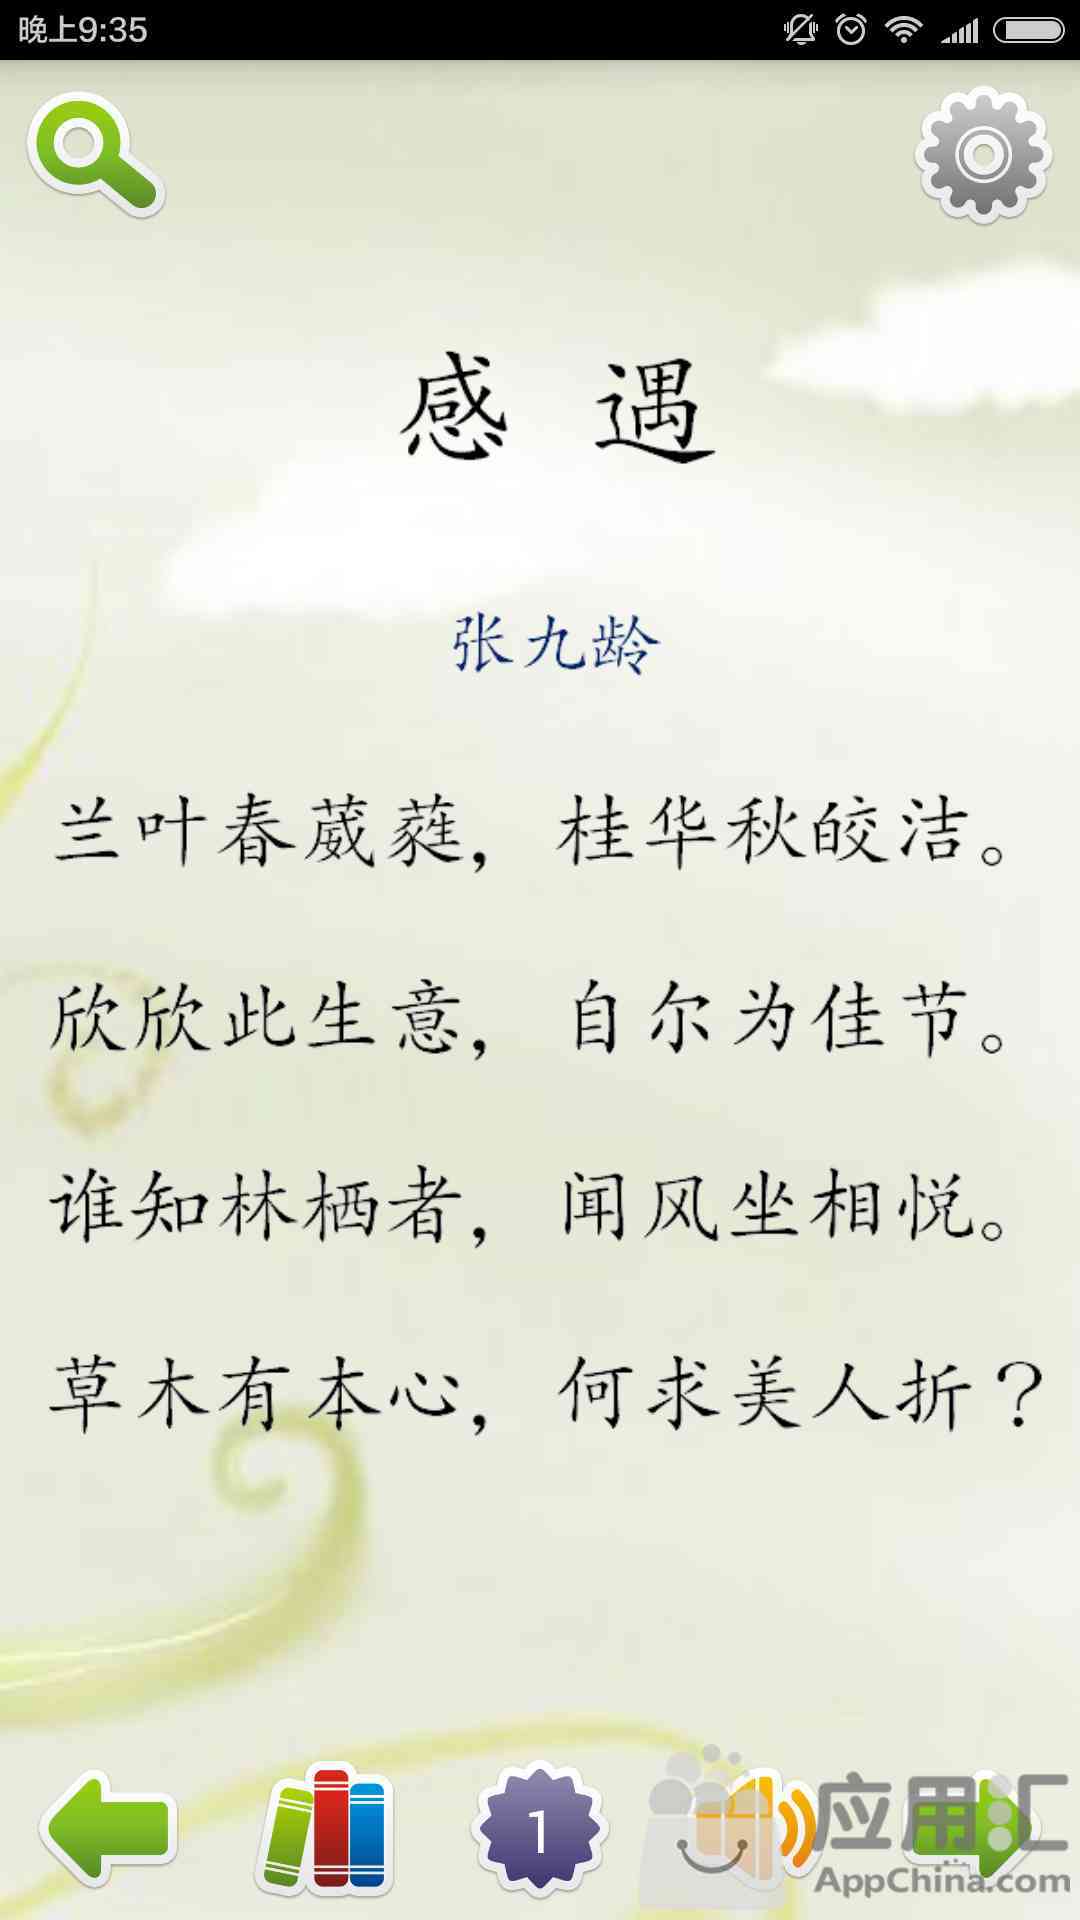 晚上9:35
感 遇
张九龄
兰叶春葳蕤，桂华秋皎洁。
欣欣此生意，自尔为佳节。
谁知林栖者，闻风坐相悦。
草木有本心，何求美人折？
1
应用汇
AppChina.com